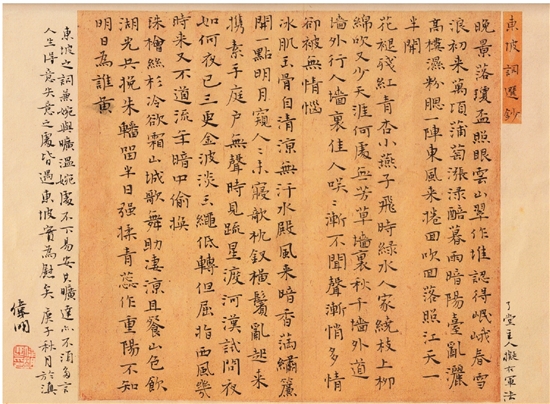 東坡詞選鈔
了堂主人擬右軍法
晚景落瓊盃照眼雲山翠作堆認得岷峨春雪
浪初来萬頃蒲萄漲渌醅暮雨暗陽臺亂灑
高樓濕粉腮一陣東風来捲回吹回落照江天一
半開
花褪残紅青杏小燕子飛時緑水人家繞枝上柳
綿吹又少天涯何處無芳草墻裏秋千墻外道
墻外行人墻裏佳人咲〻漸不聞聲漸悄多情
卻被無情惱
冰肌玉骨自清凉無汗水殿風来暗香滿繡簾
開一點明月窺人〻未寢欹枕釵橫鬢亂起来
携素手庭戶無聲時見疏星渡河漢試問夜
如何夜已三更金波淡玉繩低轉但屈指西風幾
時来又不道流年暗中偷換
珠檜絲杉冷欲霜山城歌舞助凄凉且餐山色飲
湖光共挽朱轓留半日强揉青蕊作重陽不知
明日為誰黄
東坡之詞兼婉與曠温婉處不下易安曠達亦不須多言
人生得意失意之處皆遇東坡實為慰矣庚子秋月於滇
傑明